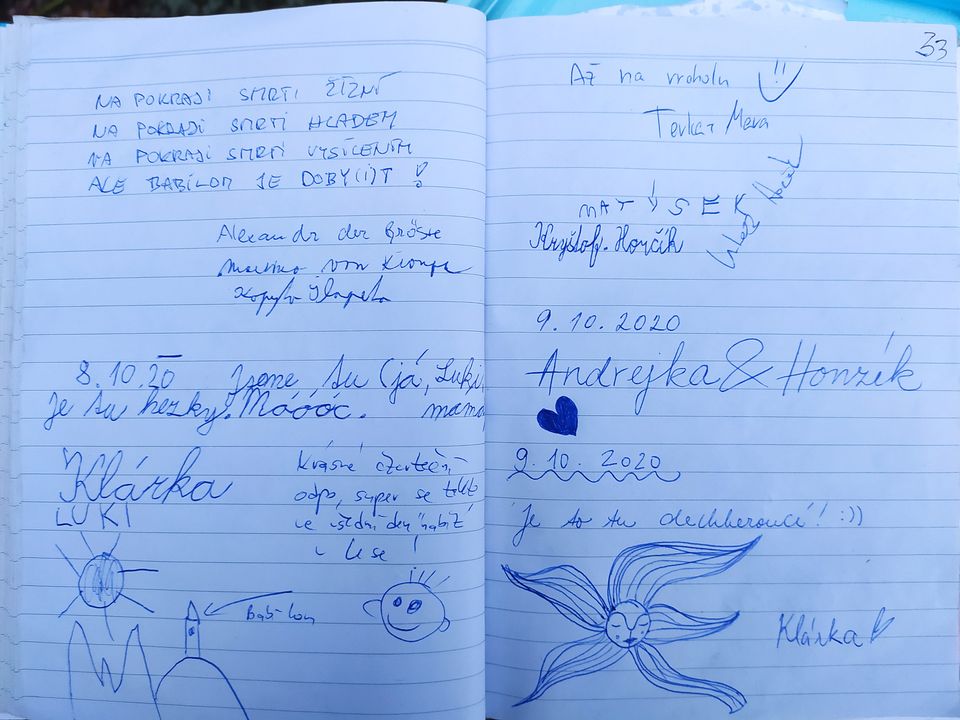 NA POKRAJI SMRTI ŽÍZNÍ
NA POKRAJI SMRTI HLADEM
NA POKRAJI SMRTI VYSÍLENÍM
ALE BABILON JE DOBY(I)T!
Alexandr der Größte
von
8.10.20 Jsme tu (já, Luki,
Je tu hezky. Móóóc. mama
Klárka
LUKI
Krásné čtvrteční
odpo, super se takto
ve všední den "nabít"
v lese!
Babilon
33
Až na vrcholu
MATÝSEK
Kryštof. Horčík
9.10.2020
Andrejka & Honzík
9.10.2020
Je to tu dechberoucí! :))
Klárka